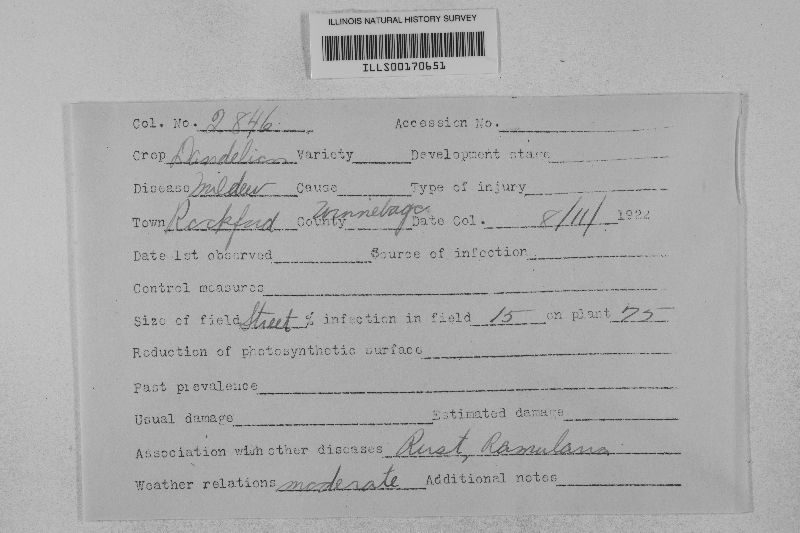 ILLINOIS NATURAL HISTORY SURVEY
ILLS00170651
Col. No. 2846 Accession No.
Crop Dandelion Variety Development stage
Disease Mildew Cause Type of injury
Town Rockford County Winnebago Date Col. 8/11/ 1922
Date 1st observed Source of infection
Control measures
Size of field Street % infection in field 15 on plant 75
Reduction of photosynthetic surface
Past prevalence
Usual damage Estimated damage
Association with other diseases Rust, Ramularia
Weather relations moderate Additional notes